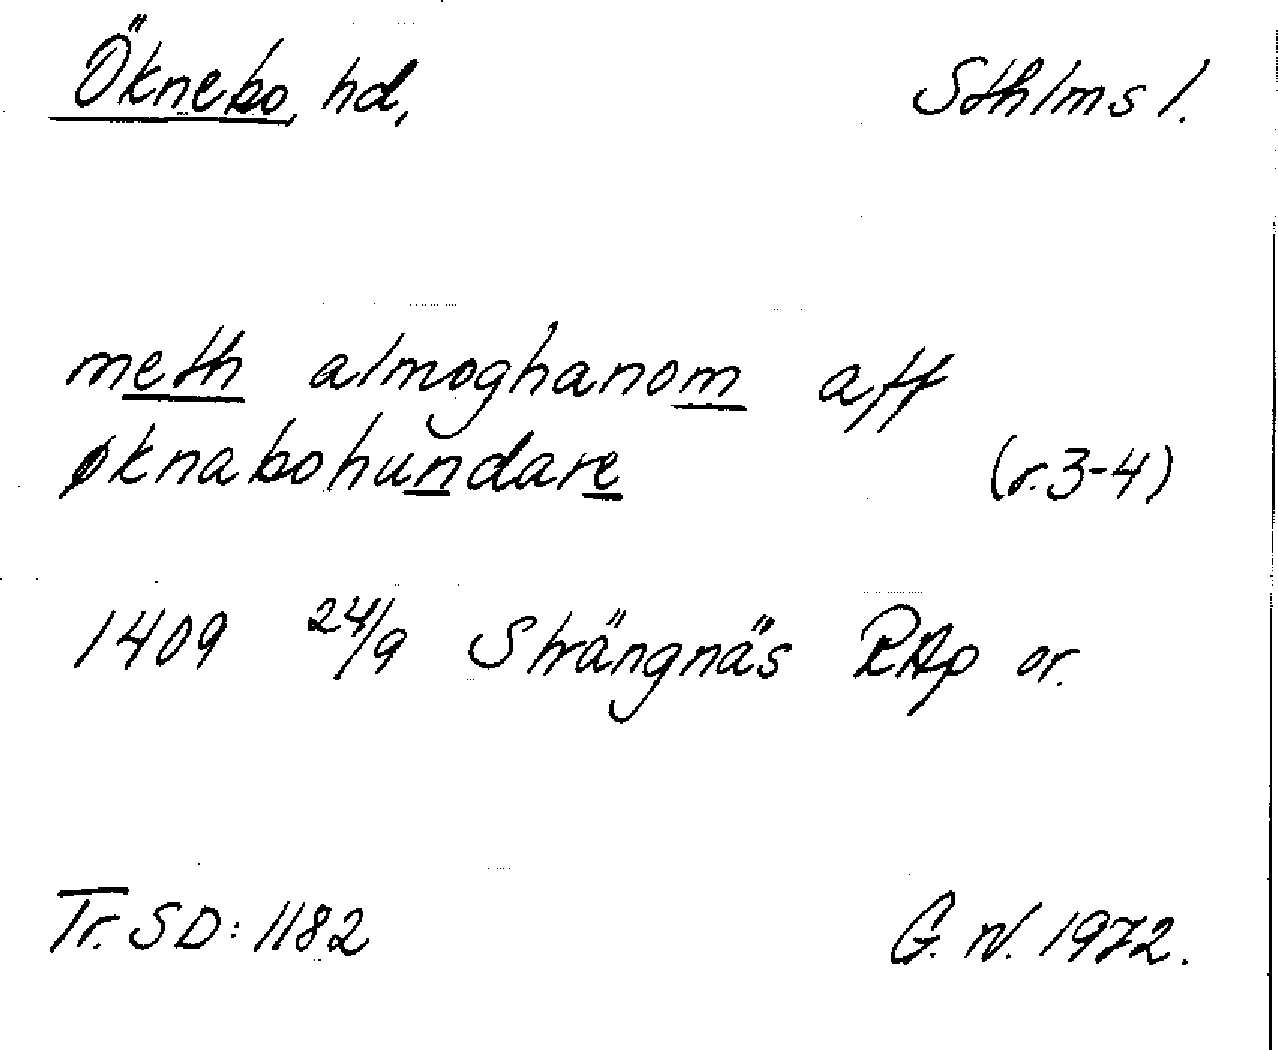 Öknebo hd, Sthlms l.
meth almoghanom aff
øknabohundare (r. 3-4)
1409 24/9 Strängnäs RAp or.
Tr. SD: 1182 G. N. 1972.